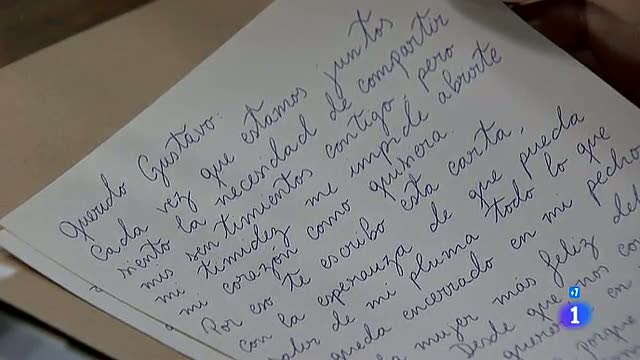 Querido Gustavo:
Cada vez que estamos juntos
siento la necesidad de compartir
mis sentimientos contigo, pero
mi timidez me impide abrirte
mi corazón como quisiera.
Por eso te escribo esta carta,
con la esperanza de que pueda
salir de mi pluma todo lo que
queda encerrado en mi pecho
la mujer más feliz del
Desde que nos con
en
porque
+7
1